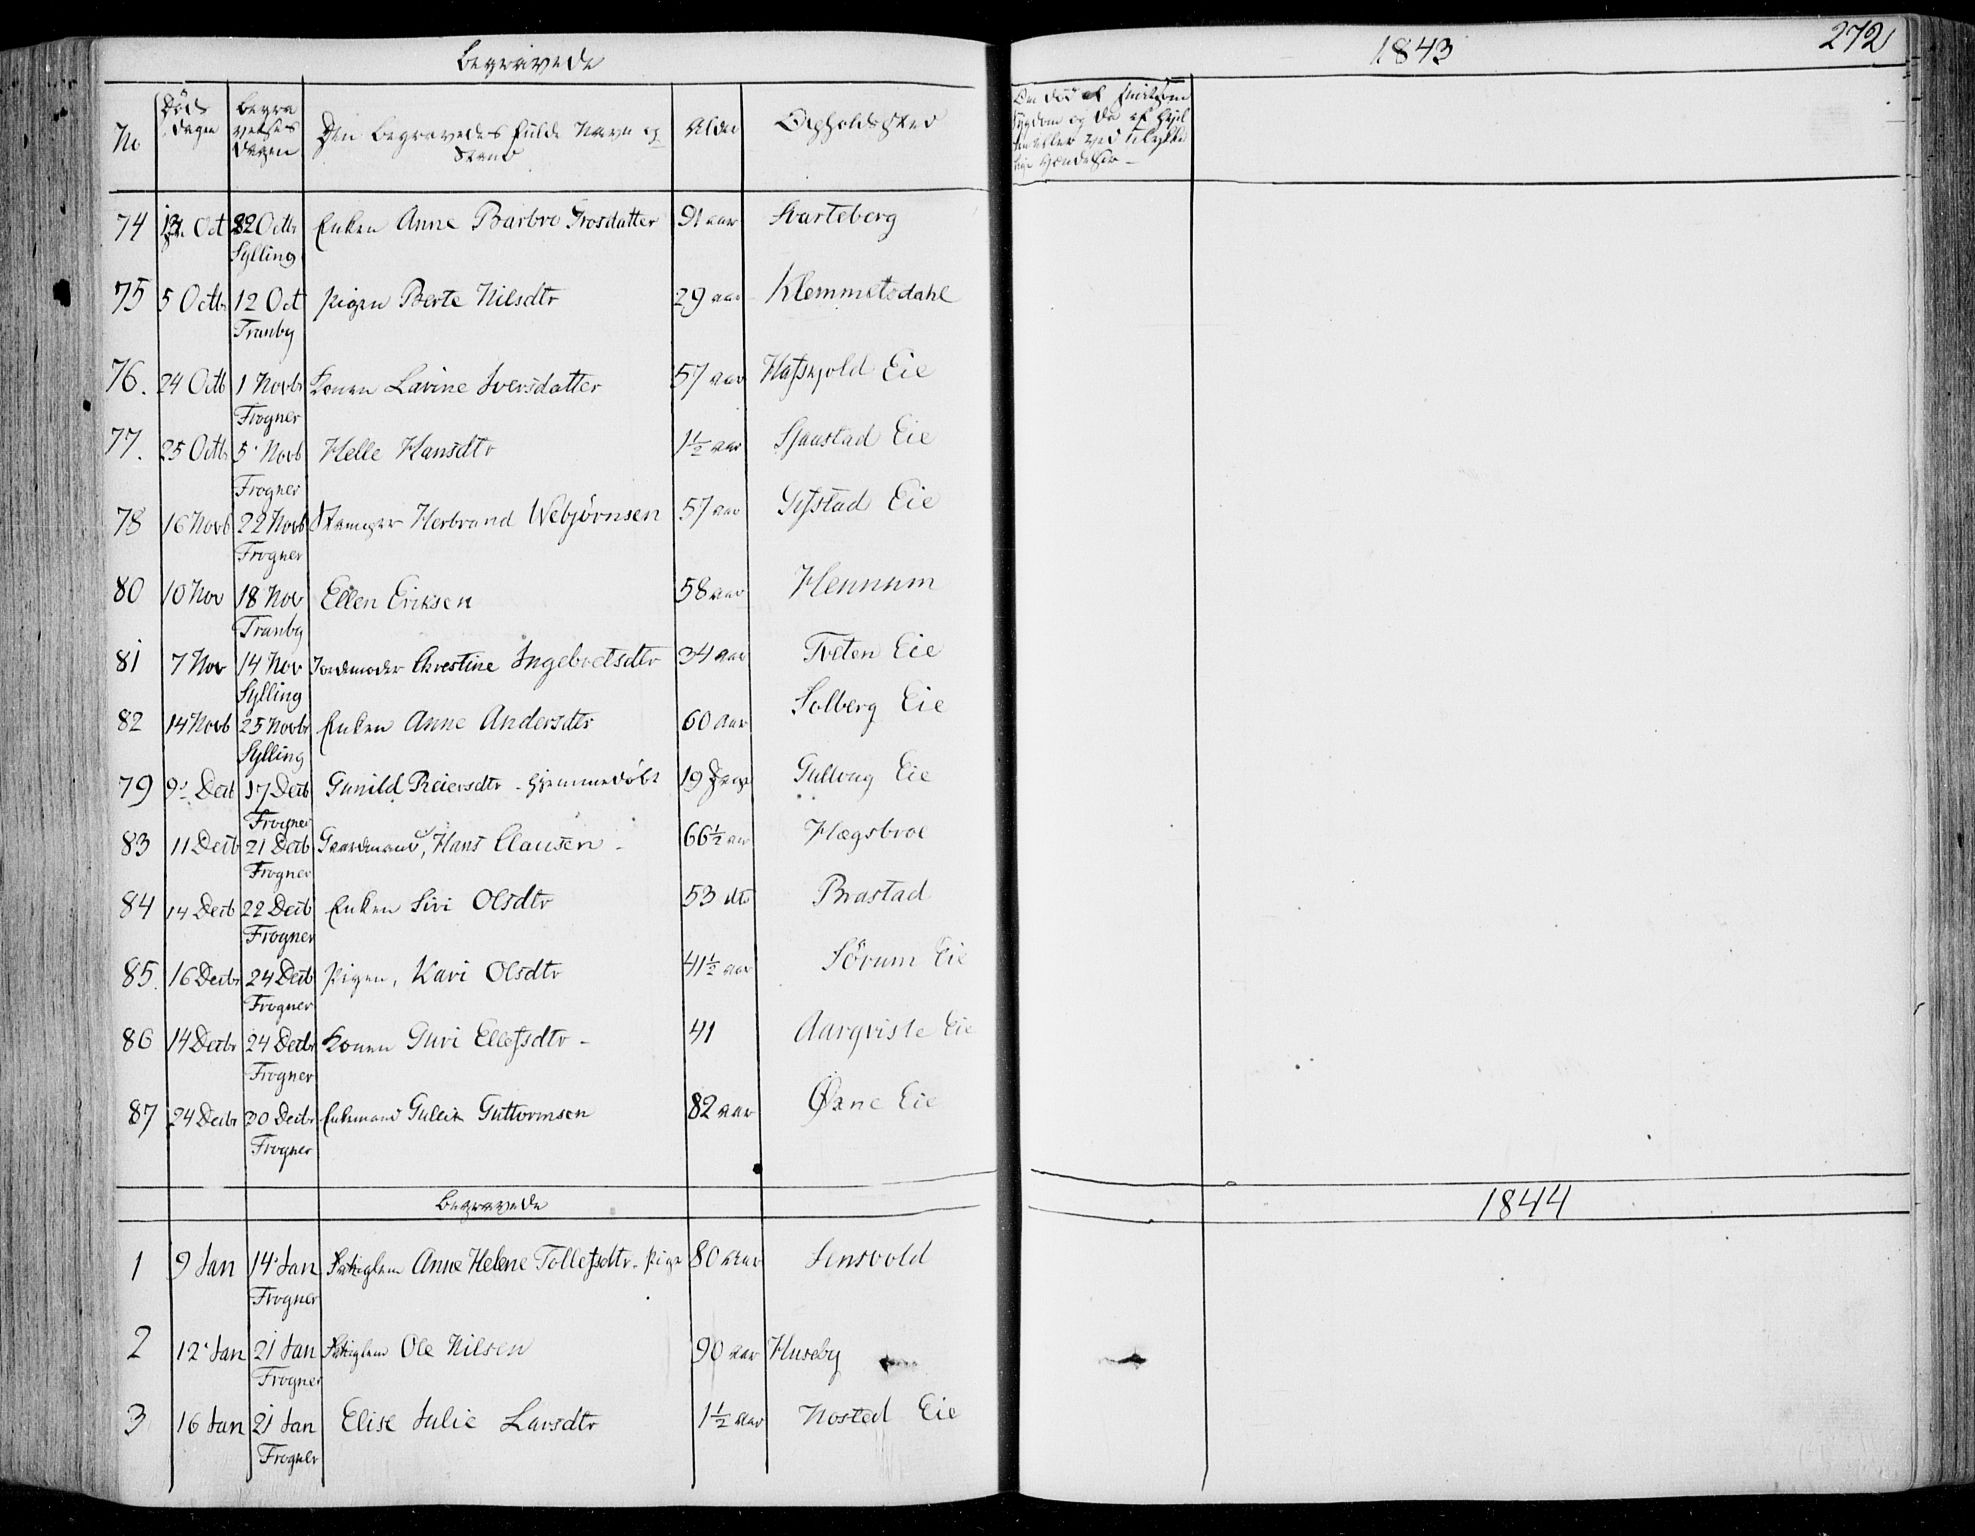 Begravede
1843
272
No
Døds Dagen
Begravelses Dagen
Den Begravedes fulde Navn og Stand
Alder
Opholdssted
74 Oct 22 Octb Enken Anne Barbro Irosdatter 91 aar Svarteberg
Sylling
75 5 Octb 12 Oct Pigen Berte Nilsdtr 29 aar Klemmetsdahl
Tranby
76. 24 Octb 1 Novbr Konen Lavine Iversdatter 57 aar Hafskjold Eie
Frogner
77. 25 Octb 5 Novb Helle Hansdtr 1½ aar Sjaastad Eie
Frogner
78 16 Novb 22 Novb Herbrand Webjørnsen 57 aar Gifstad Eie
Frogner
80 10 Nov 18 Nov Ellen Eriksen 58 aar Hennum
Tranby
81 7 Nov 14 Nov Jordemoder Christine Ingebretsdtr 34 aar Tveten Eie
Sylling
82 14 Novb 25 Novbr Enken Anne Andersdtr 60 Aar Solberg Eie
Sylling
79 9 Decb 17 Decb Gunild Reiersdtr - hjemmedøbt 19 Dage Gullaug Eie
Frogner
83 11 Decb 21 Decb Gaardmand, Hans Clausen - 66½ aar Hægsbroe
Frogner
84 14 Decb 22 Decb Enken Siri Olsdtr 53 dto Brastad
Frogner
85. 16 Decbr 24 Decb Pigen, Kari Olsdtr 41½ aar Sørum Eie
Frogner
86 14 Decbr 24 Decbr Konen Guri Ellefsdtr - 41 Aarqvisle Eie
Frogner
87 24 Decbr 30 Decbr Enkemand Gulleik Guttormsen 82 aar Øxne Eie
Frogner
Begravede
1844
1 9 Jan 14 Jan Anne Helene Tollefsdtr. Pige 80 Aar Lensvold
Frogner
2 12 Jan 21 Jan Ole Nilsen 90 aar Huseby
Frogner
3 16 Jan 21 Jan Elise Julie Larsdtr 1½ Aar Nosted Eie
Frogner